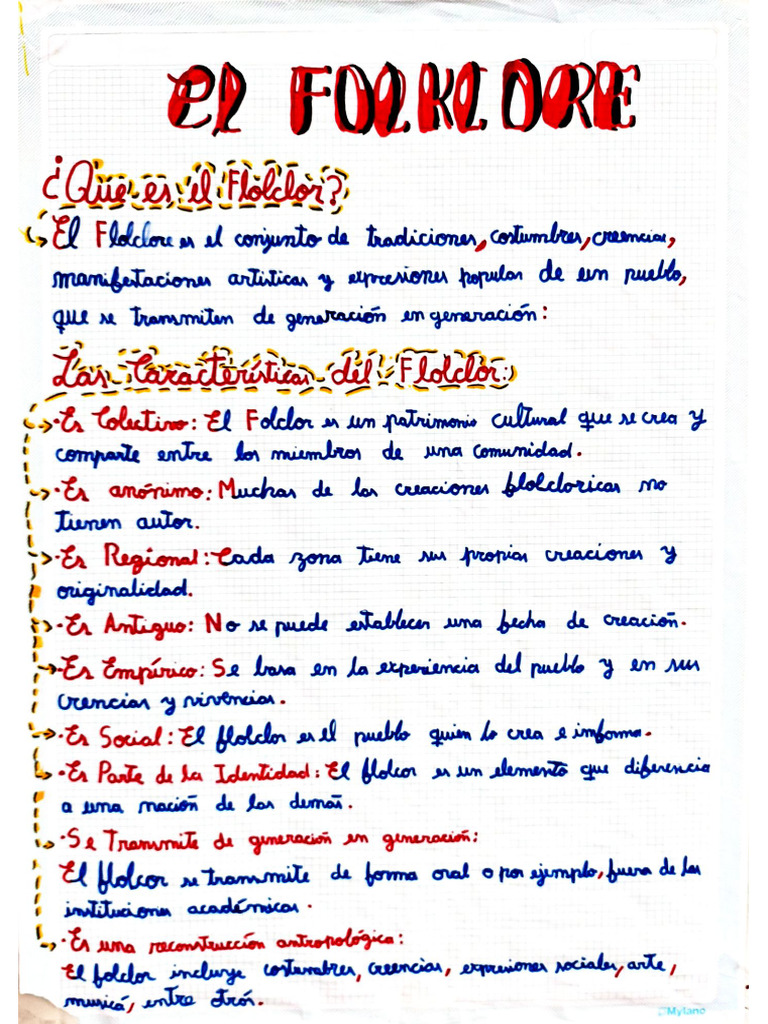 El FOLKLORE
¿Que es el Flolclor?
El Flolclore es el conjunto de tradiciones, costumbres, creencias,
manifestaciones artísticas y expresiones popular de un pueblo,
que se transmiten de generación en generación:
Las Características del Flolclor:
·Es Colectivo: El Folclor es un patrimonio cultural que se crea y
comparte entre los miembros de una comunidad.
·Es anónimo: Muchas de las creaciones flolcloricas no
tienen autor.
·Es Regional: Cada zona tiene sus propias creaciones y
originalidad.
·Es Antiguo: No se puede establecer una fecha de creación.
·Es Empírico: Se basa en la experiencia del pueblo y en sus
crencias y vivencias.
·Es Social: El flolclor es el pueblo quien lo crea e imforma.
·Es Parte de la Identidad: El flolcor es un elemento que diferencia
a una nación de las demás.
·Se Transmite de generación en generación:
El flolcor se transmite de forma oral o por ejemplo, fuera de las
instituciones académicas.
·Es una reconstrucción antropológica:
El folclor incluye costumbres, creencias, expresiones sociales, arte,
musicá, entre otrós.
Mylano